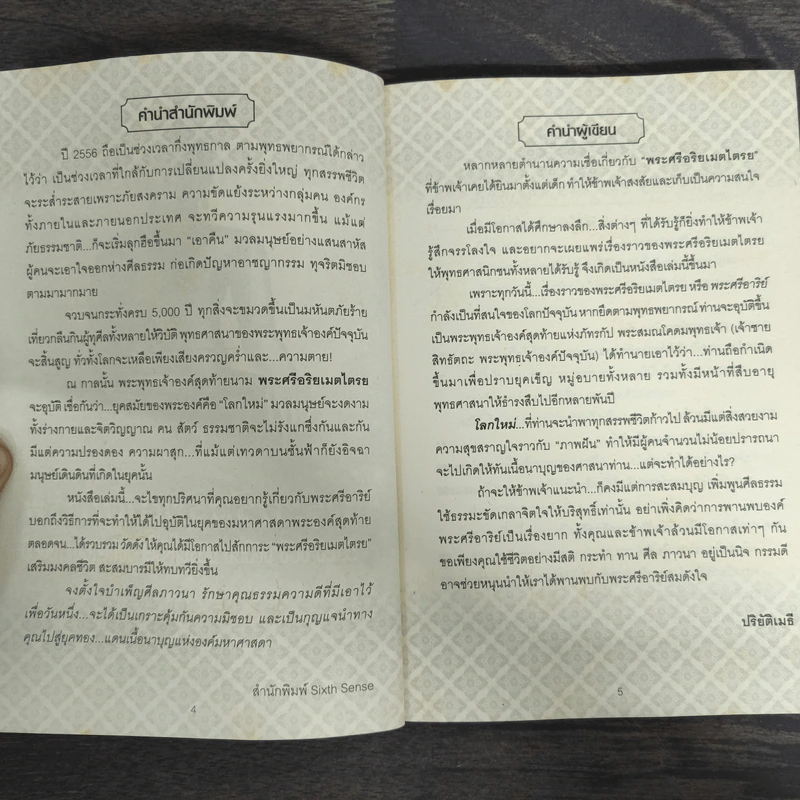 คำนำสำนักพิมพ์
ปี 2556 ถือเป็นช่วงเวลากึ่งพุทธกาล ตามพุทธพยากรณ์ได้กล่าว
ไว้ว่า เป็นช่วงเวลาที่ใกล้กับการเปลี่ยนแปลงครั้งยิ่งใหญ่ ทุกสรรพชีวิต
จะระส่ำระสายเพราะภัยสงคราม ความขัดแย้งระหว่างกลุ่มคน องค์กร
ทั้งภายในและภายนอกประเทศ จะทวีความรุนแรงมากขึ้น แม้แต่
ภัยธรรมชาติ...ก็จะเริ่มลุกฮือขึ้นมา “เอาคืน” มวลมนุษย์อย่างแสนสาหัส
ผู้คนจะเอาใจออกห่างศีลธรรม ก่อเกิดปัญหาอาชญากรรม ทุจริตมิชอบ
ตามมามากมาย
จวบจนกระทั่งครบ 5,000 ปี ทุกสิ่งจะขมวดขึ้นเป็นมหันตภัยร้าย
เที่ยวกลืนกินผู้ทุศีลทั้งหลายให้วิบัติ พุทธศาสนาของพระพุทธเจ้าองค์ปัจจุบัน
จะสิ้นสูญ ทั่วทั้งโลกจะเหลือเพียงเสียงครวญคร่ำและ...ความตาย!
ณ กาลนั้น พระพุทธเจ้าองค์สุดท้ายนาม พระศรีอริยเมตไตรย
จะอุบัติ เชื่อกันว่า...ยุคสมัยของพระองค์คือ “โลกใหม่” มวลมนุษย์จะงดงาม
ทั้งร่างกายและจิตวิญญาณ คน สัตว์ ธรรมชาติจะไม่รังแกซึ่งกันและกัน
มีแต่ความปรองดอง ความผาสุก...ที่แม้แต่เทวดาบนชั้นฟ้าก็ยังอิจฉา
มนุษย์เดินดินที่เกิดในยุคนั้น
หนังสือเล่มนี้...จะไขทุกปริศนาที่คุณอยากรู้เกี่ยวกับพระศรีอาริย์
บอกถึงวิธีการที่จะทำให้ได้ไปอุบัติในยุคของมหาศาสดาพระองค์สุดท้าย
ตลอดจน...ได้รวบรวม วัดดัง ให้คุณได้มีโอกาสไปสักการะ “พระศรีอริยเมตไตรย”
เสริมมงคลชีวิต สะสมบารมีให้ทบทวียิ่งขึ้น
จงตั้งใจบำเพ็ญศีลภาวนา รักษาคุณธรรมความดีที่มีเอาไว้
เพื่อวันหนึ่ง...จะได้เป็นเกราะคุ้มกันความมิชอบ และเป็นกุญแจนำทาง
คุณไปสู่ยุคทอง...แดนเนื้อนาบุญแห่งองค์มหาศาสดา
สำนักพิมพ์ Sixth Sense
4
คำนำผู้เขียน
หลากหลายตำนานความเชื่อเกี่ยวกับ “พระศรีอริยเมตไตรย”
ที่ข้าพเจ้าเคยได้ยินมาตั้งแต่เด็ก ทำให้ข้าพเจ้าสงสัยและเก็บเป็นความสนใจ
เรื่อยมา
เมื่อมีโอกาสได้ศึกษาลงลึก...สิ่งต่างๆ ที่ได้รับรู้ก็ยิ่งทำให้ข้าพเจ้า
รู้สึกจรรโลงใจ และอยากจะเผยแพร่เรื่องราวของพระศรีอริยเมตไตรย
ให้พุทธศาสนิกชนทั้งหลายได้รับรู้ จึงเกิดเป็นหนังสือเล่มนี้ขึ้นมา
เพราะทุกวันนี้...เรื่องราวของพระศรีอริยเมตไตรย หรือ พระศรีอาริย์
กำลังเป็นที่สนใจของโลกปัจจุบัน หากยึดตามพุทธพยากรณ์ ท่านจะอุบัติขึ้น
เป็นพระพุทธเจ้าองค์สุดท้ายแห่งภัทรกัป พระสมณโคดมพุทธเจ้า (เจ้าชาย
สิทธัตถะ พระพุทธเจ้าองค์ปัจจุบัน) ได้ทำนายเอาไว้ว่า...ท่านถือกำเนิด
ขึ้นมาเพื่อปราบยุคเข็ญ หมู่อบายทั้งหลาย รวมทั้งมีหน้าที่สืบอายุ
พุทธศาสนาให้ธำรงสืบไปอีกหลายพันปี
โลกใหม่...ที่ท่านจะนำพาทุกสรรพชีวิตก้าวไป ล้วนมีแต่สิ่งสวยงาม
ความสุขสราญใจราวกับ “ภาพฝัน” ทำให้มีผู้คนจำนวนไม่น้อยปรารถนา
จะไปเกิดให้ทันเนื้อนาบุญของศาสนาท่าน...แต่จะทำได้อย่างไร?
ถ้าจะให้ข้าพเจ้าแนะนำ...ก็คงมีแต่การสะสมบุญ เพิ่มพูนศีลธรรม
ใช้ธรรมะขัดเกลาจิตใจให้บริสุทธิ์เท่านั้น อย่าเพิ่งคิดว่าการพานพบองค์
พระศรีอาริย์เป็นเรื่องยาก ทั้งคุณและข้าพเจ้าล้วนมีโอกาสเท่าๆ กัน
ขอเพียงคุณใช้ชีวิตอย่างมีสติ กระทำ ทาน ศีล ภาวนา อยู่เป็นนิจ กรรมดี
อาจช่วยหนุนนำให้เราได้พานพบกับพระศรีอาริย์สมดังใจ
ปริยัติเมธี
5